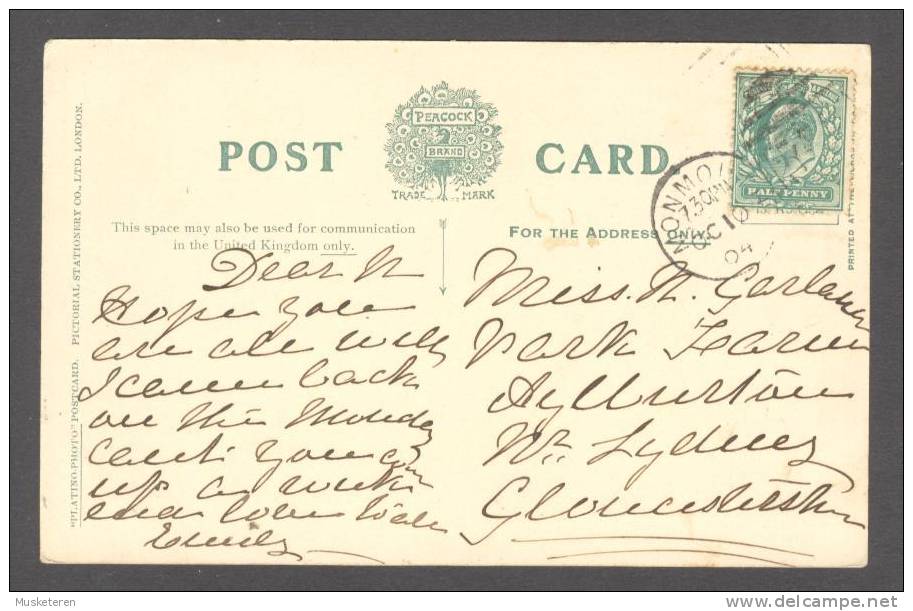 POST CARD
PEACOCK
BRAND
TRADE MARK
This space may also be used for communication
in the United Kingdom only.
FOR THE ADDRESS ONLY.
HALF PENNY
MONMO
730PM
OC 10
04
"PLATINO-PHOTO" POSTCARD. PICTORIAL STATIONERY CO., LTD. LONDON.
PRINTED AT THE
Dear N
Hope you
are all well
I came back
on the Monday
cant you come
up a week
end love to all
Emily
Miss. N. Garland
Park Farm
Aylburton
Nr. Lydney
Gloucestershire
Musketeren
delcampe.net